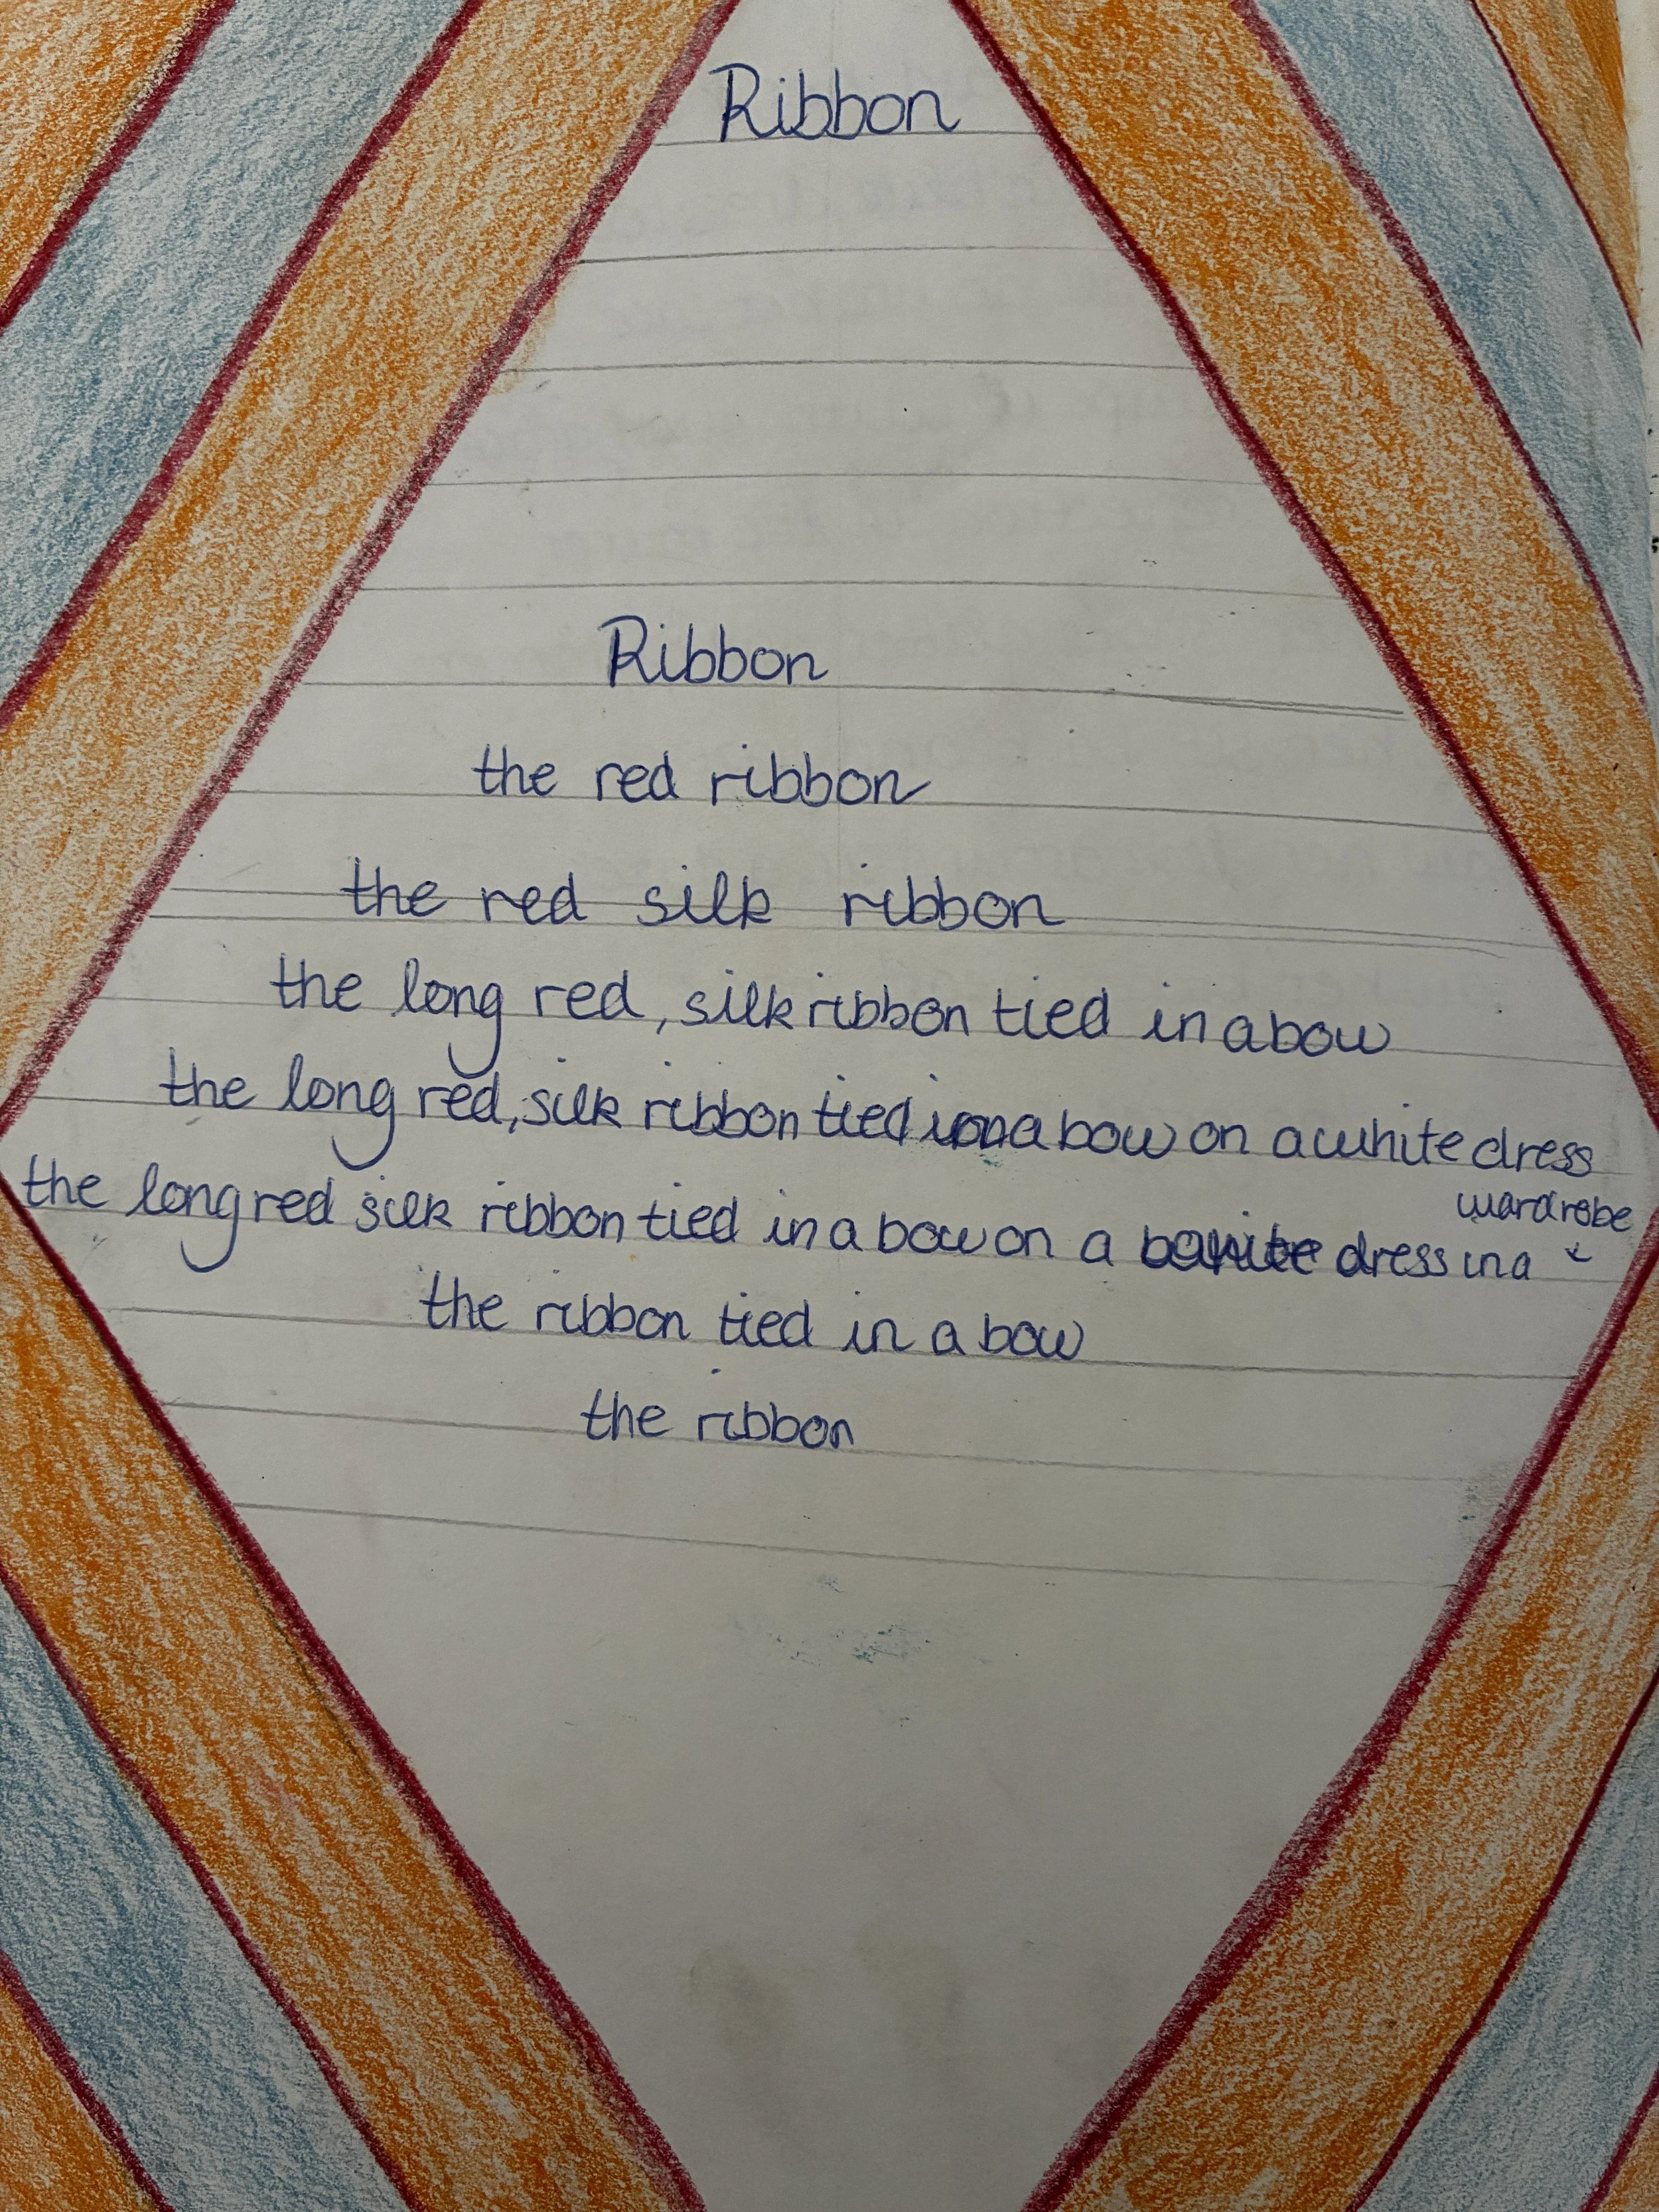 Ribbon
Ribbon
the red ribbon
the red silk ribbon
the long red, silk ribbon tied in a bow
the long red, silk ribbon tied in a bow on a white dress
the long red silk ribbon tied in a bow on a white dress in a wardrobe
the ribbon tied in a bow
the ribbon